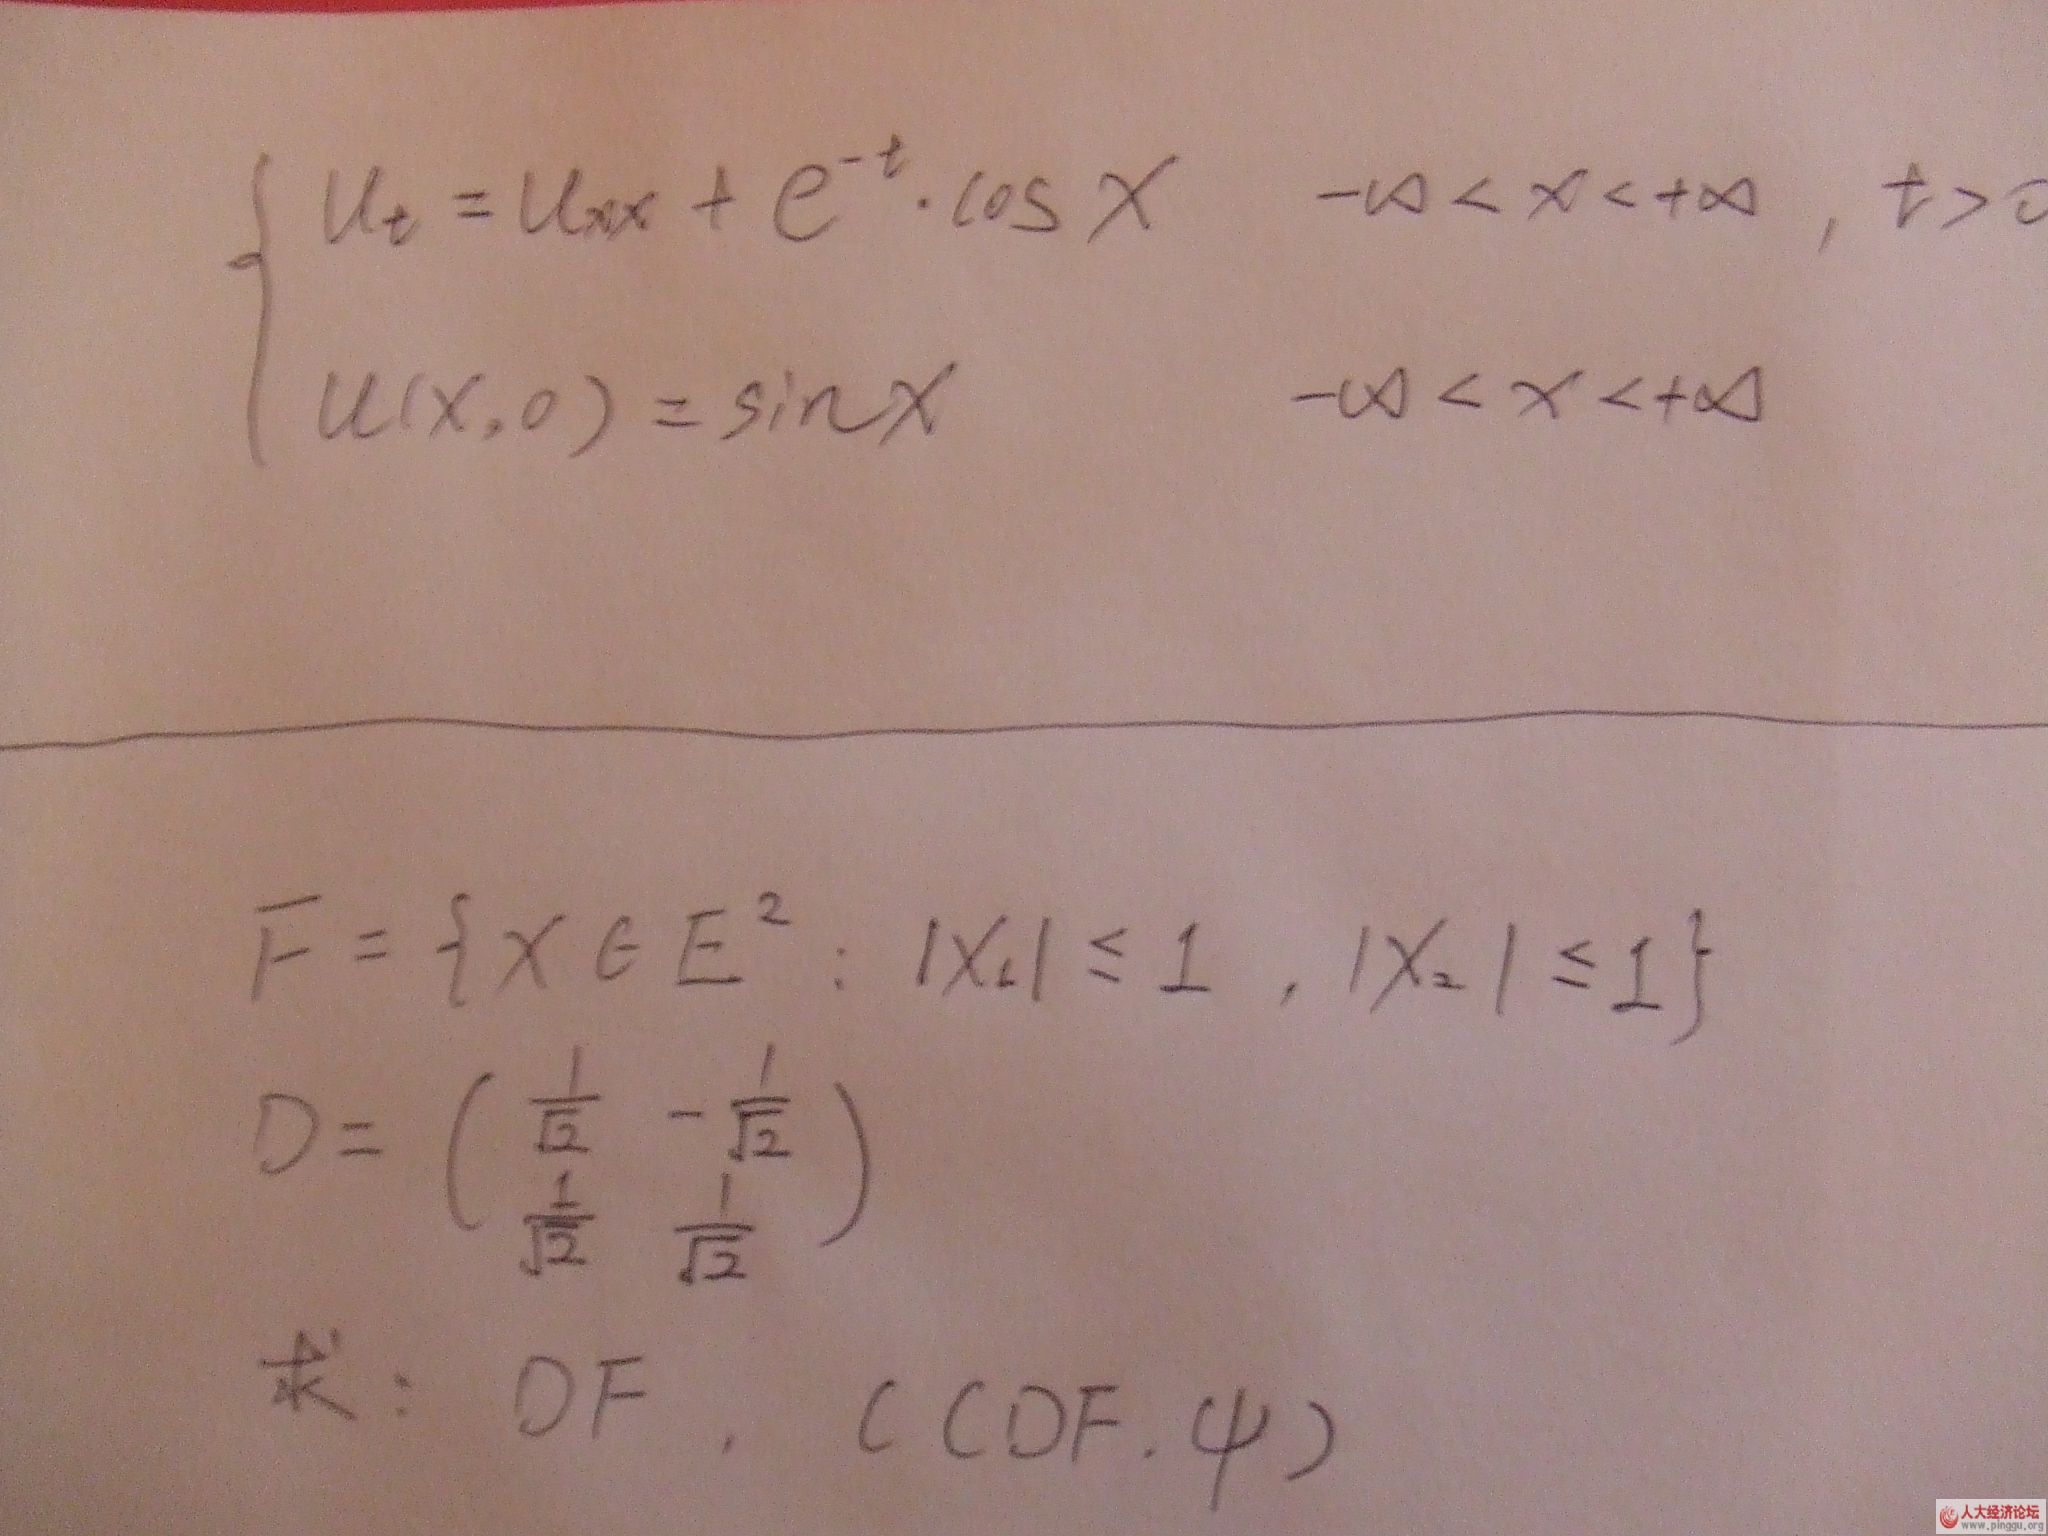 { uₜ = uₓₓ + e⁻ᵗ · cos x    -∞ < x < +∞ , t > 0
u(x, 0) = sin x    -∞ < x < +∞
F = {x ∈ E² : |x₁| ≤ 1 , |x₂| ≤ 1}
D = ( 1/√2  -1/√2
1/√2  1/√2 )
求: DF , C(DF, ψ)
人大经济论坛
www.pinggu.org